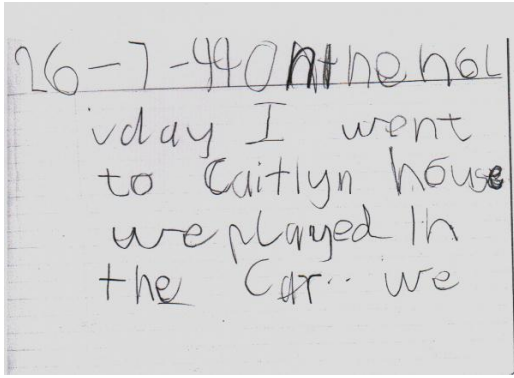 26-7-44 On the hol
iday I went
to Caitlyn house
we played In
the Car.. we